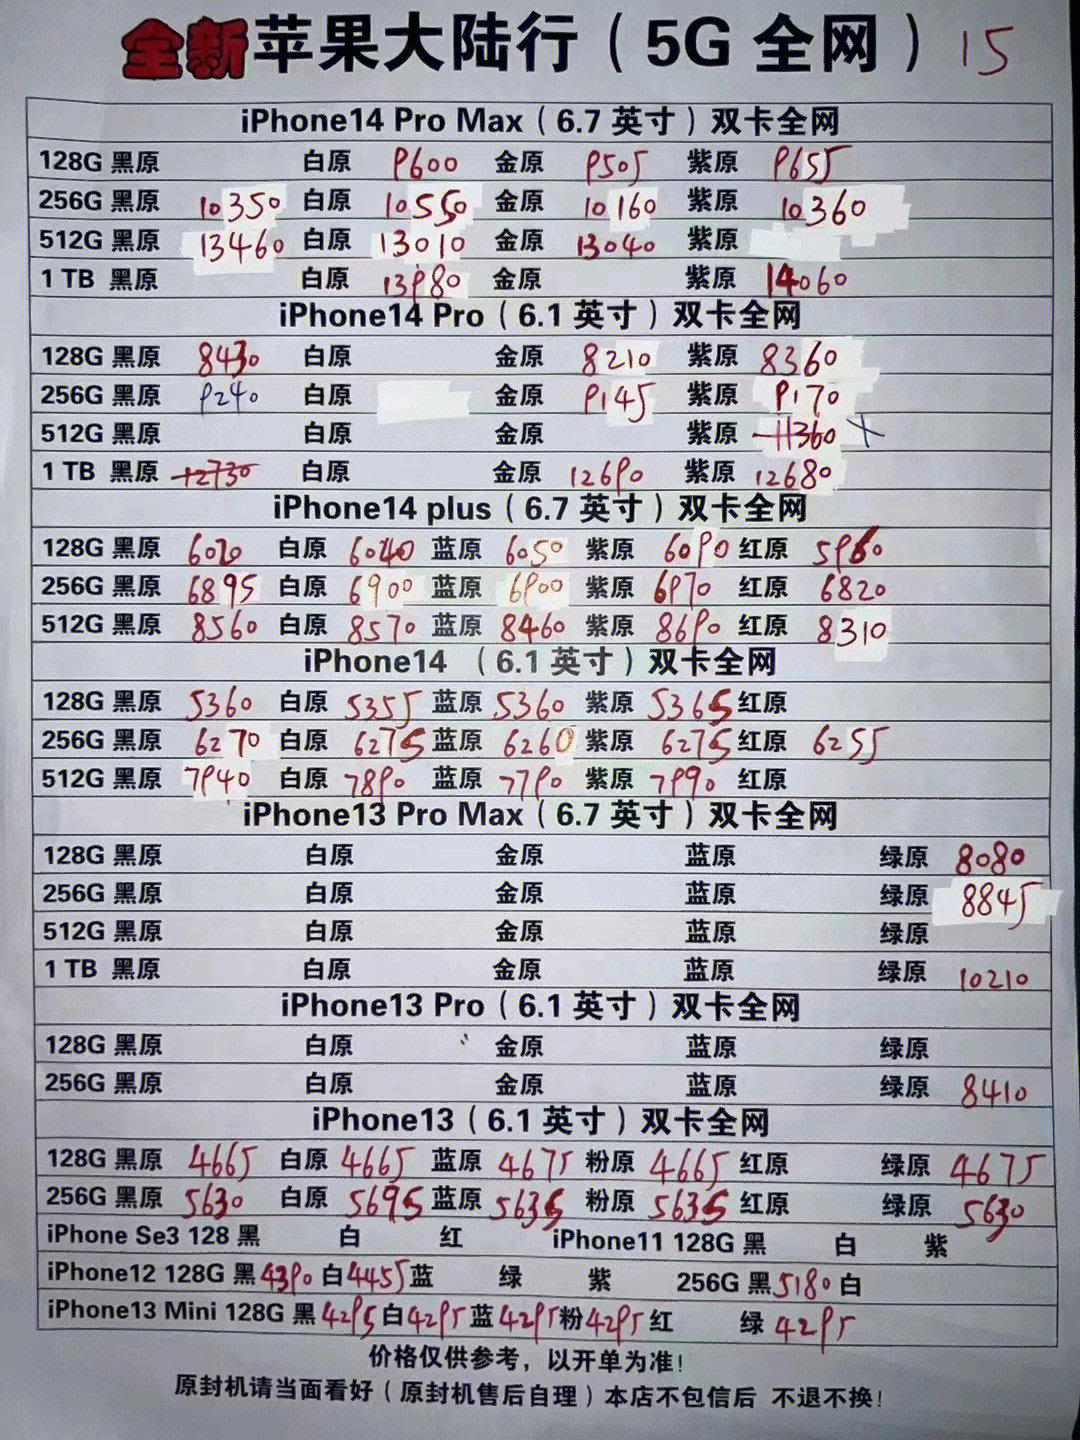 全新苹果大陆行（5G 全网）15
iPhone14 Pro Max（6.7 英寸）双卡全网
128G 黑原 白原 9600 金原 9505 紫原 9655
256G 黑原 10350 白原 10550 金原 10160 紫原 10360
512G 黑原 13460 白原 13010 金原 13040 紫原
1 TB 黑原 白原 13980 金原 紫原 14060
iPhone14 Pro（6.1 英寸）双卡全网
128G 黑原 8430 白原 金原 8210 紫原 8360
256G 黑原 9240 白原 金原 9145 紫原 9170
512G 黑原 白原 金原 紫原 11360 ×
1 TB 黑原 12730 白原 金原 12690 紫原 12680
iPhone14 plus（6.7 英寸）双卡全网
128G 黑原 6020 白原 6040 蓝原 6050 紫原 6090 红原 5960
256G 黑原 6895 白原 6900 蓝原 6900 紫原 6970 红原 6820
512G 黑原 8560 白原 8570 蓝原 8460 紫原 8690 红原 8310
iPhone14 （6.1 英寸）双卡全网
128G 黑原 5360 白原 5355 蓝原 5360 紫原 5365 红原
256G 黑原 6270 白原 6275 蓝原 6260 紫原 6275 红原 6255
512G 黑原 7940 白原 7890 蓝原 7790 紫原 7990 红原
iPhone13 Pro Max（6.7 英寸）双卡全网
128G 黑原 白原 金原 蓝原 绿原 8080
256G 黑原 白原 金原 蓝原 绿原 8845
512G 黑原 白原 金原 蓝原 绿原
1 TB 黑原 白原 金原 蓝原 绿原 10210
iPhone13 Pro（6.1 英寸）双卡全网
128G 黑原 白原 金原 蓝原 绿原
256G 黑原 白原 金原 蓝原 绿原 8410
iPhone13（6.1 英寸）双卡全网
128G 黑原 4665 白原 4665 蓝原 4675 粉原 4665 红原 绿原 4675
256G 黑原 5630 白原 5695 蓝原 5635 粉原 5635 红原 绿原 5630
iPhone Se3 128 黑 白 红 iPhone11 128G 黑 白 紫
iPhone12 128G 黑 4390 白 4455 蓝 绿 紫 256G 黑 5180 白
iPhone13 Mini 128G 黑 4295 白 4295 蓝 4295 粉 4295 红 绿 4295
价格仅供参考，以开单为准！
原封机请当面看好（原封机售后自理）本店不包信后 不退不换！